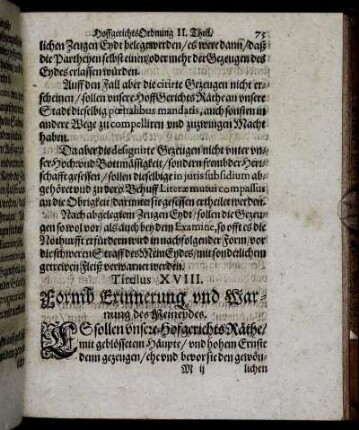 HoffgerichtsOrdnung II. Theil. 75
lichen Zeugen Eydt belegt werden / es were dann / daß
die Partheyen selbst einen oder mehr der Gezeugen des
Eydes erlassen würden.
Auff den Fall aber die citirte Gezeugen nicht er-
scheinen / sollen unsere HoffGerichts Räthe an unsere
Stadt dieselbig pœnalibus mandatis, auch sonsten in
andere Wege zu compelliren und zuzwingen Macht
haben.
Da aber die designirte Gezeugen nicht unter un-
ser Hoch- und Bottmässigkeit / sondern frembder Herr-
schafft gesessen / sollen dieselbige in juris subsidium ab-
gehöret und zu dero Behuff Literæ mutui compassus
an die Obrigkeit / darunter sie gesessen ertheilet werden.
Nach abgelegtem Zeugen Eydt / sollen die Gezeu-
gen so wol vor / als auch bey dem Examine, so offt es die
Nothurfft erfürdern wird in nachfolgender Form / vor
die schweren Straff des MeinEydes / mit sonderlichem
getrewen Fleiß verwarnet werden.
Titulus XVIII.
Formb Erinnerung vnd War-
nung des Meineydes.
ES sollen vnsere Hofgerichts Räthe /
mit geblössetem Häupte / und hohem Ernste
denn gezeugen / ehe und bevor sie den gewön-
M ij lichen